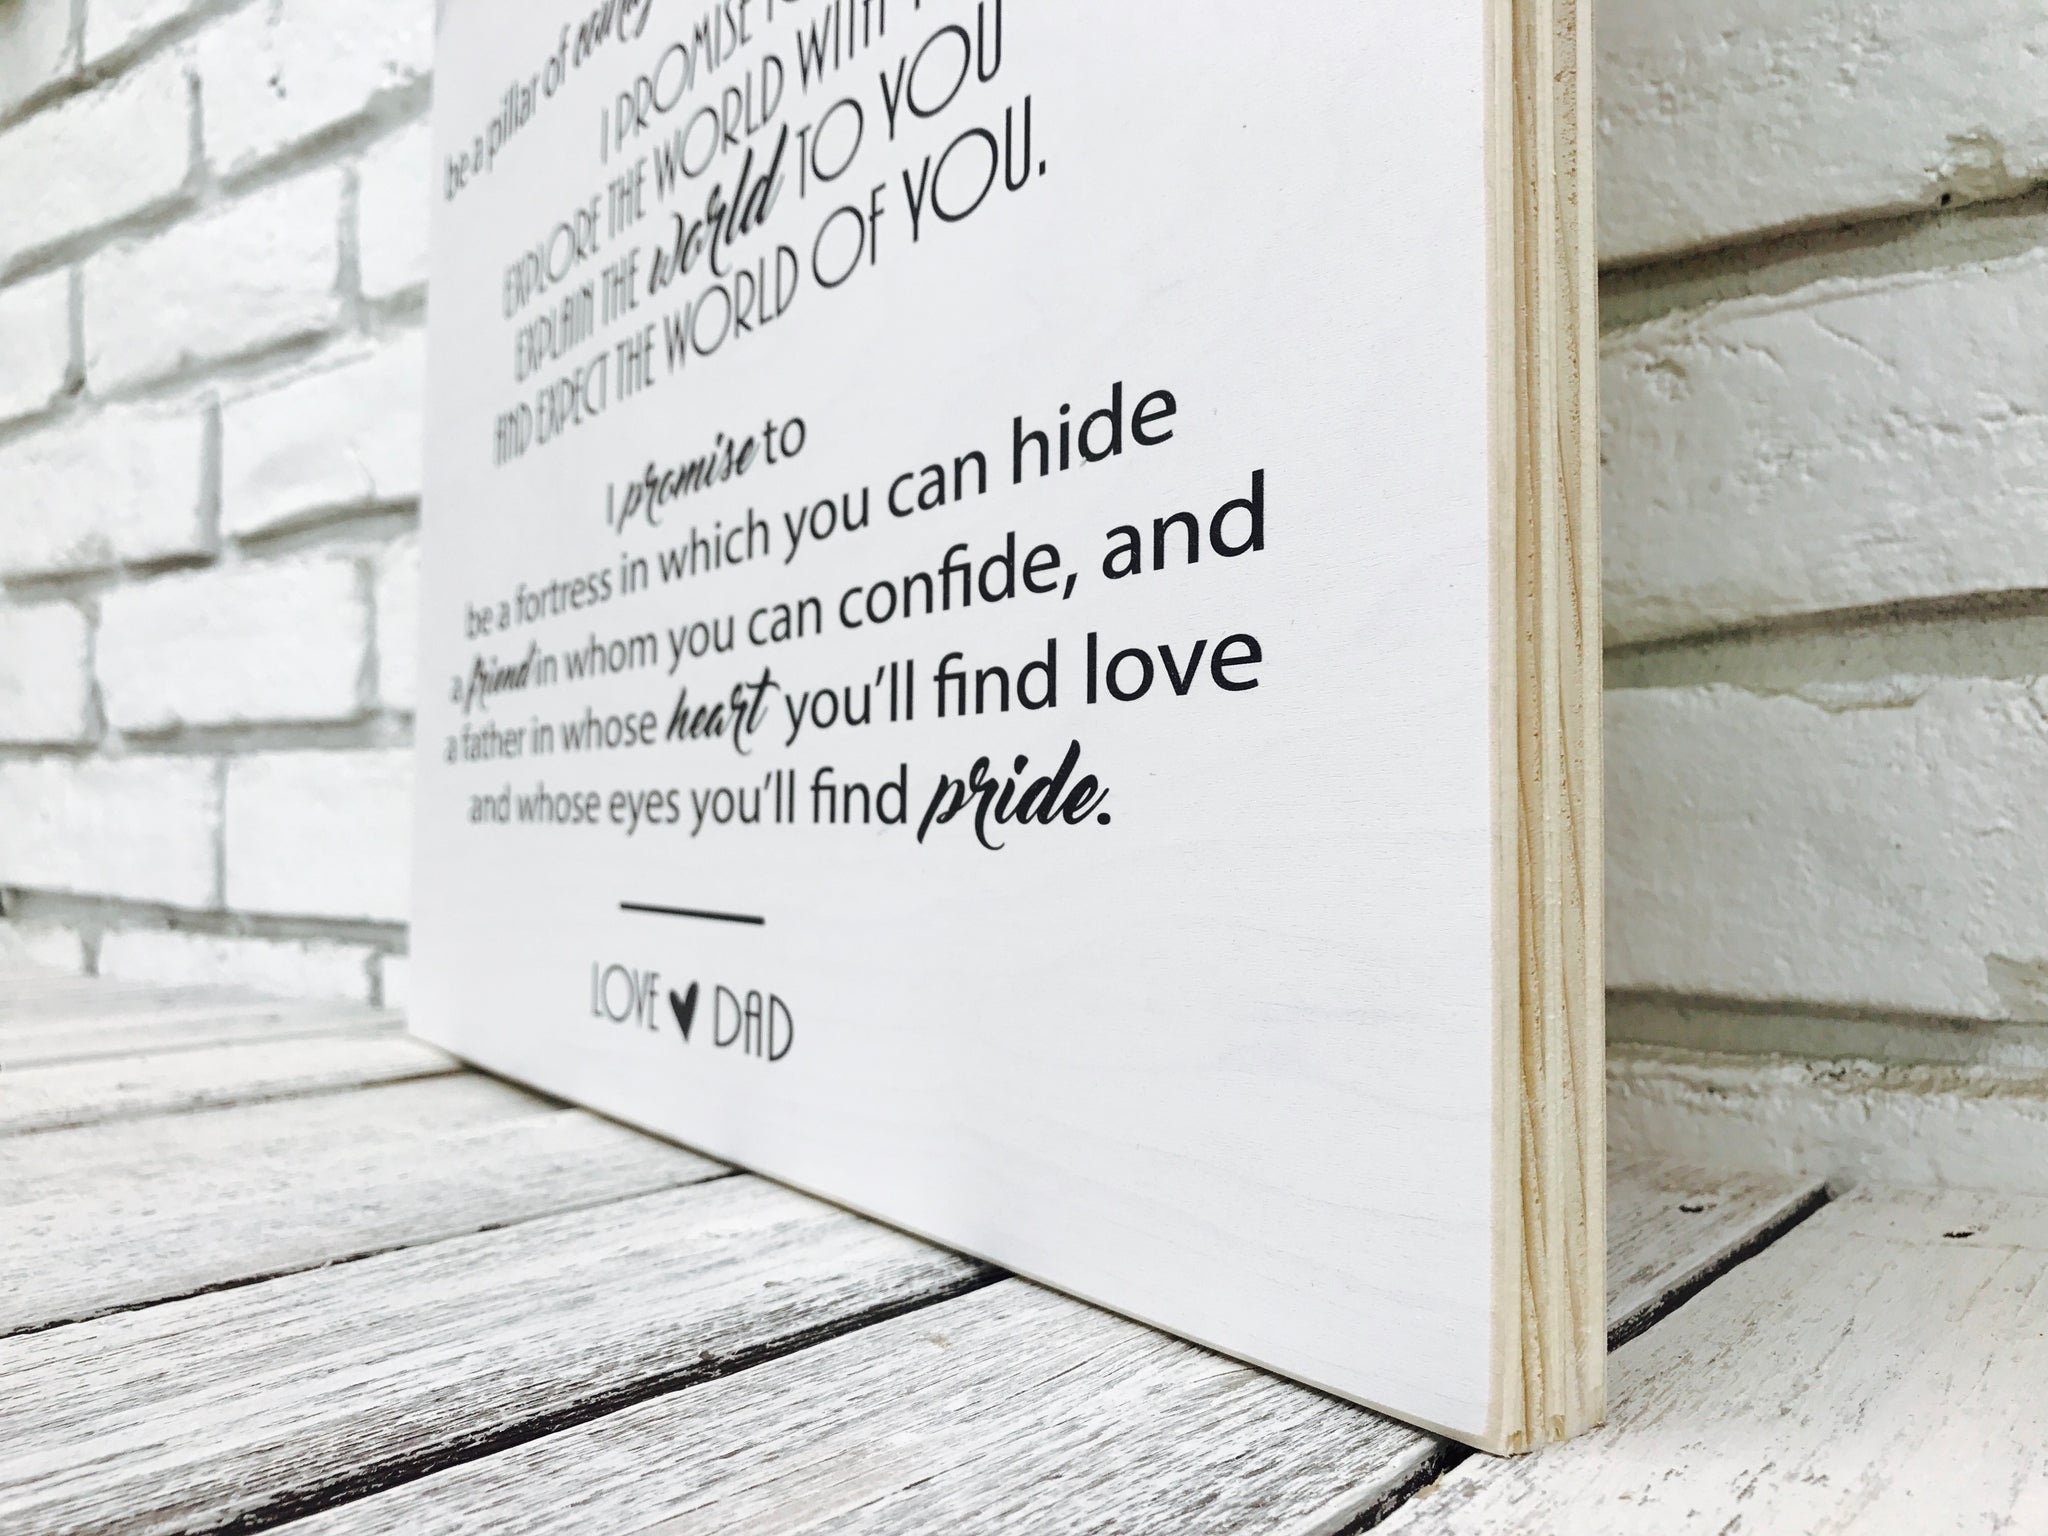 be a pillar of
I PROMISE
EXPLORE THE WORLD WITH
EXPLAIN THE world TO YOU
AND EXPECT THE WORLD OF YOU.
I promise to
be a fortress in which you can hide
a friend in whom you can confide, and
a father in whose heart you'll find love
and whose eyes you'll find pride.
LOVE ♥ DAD